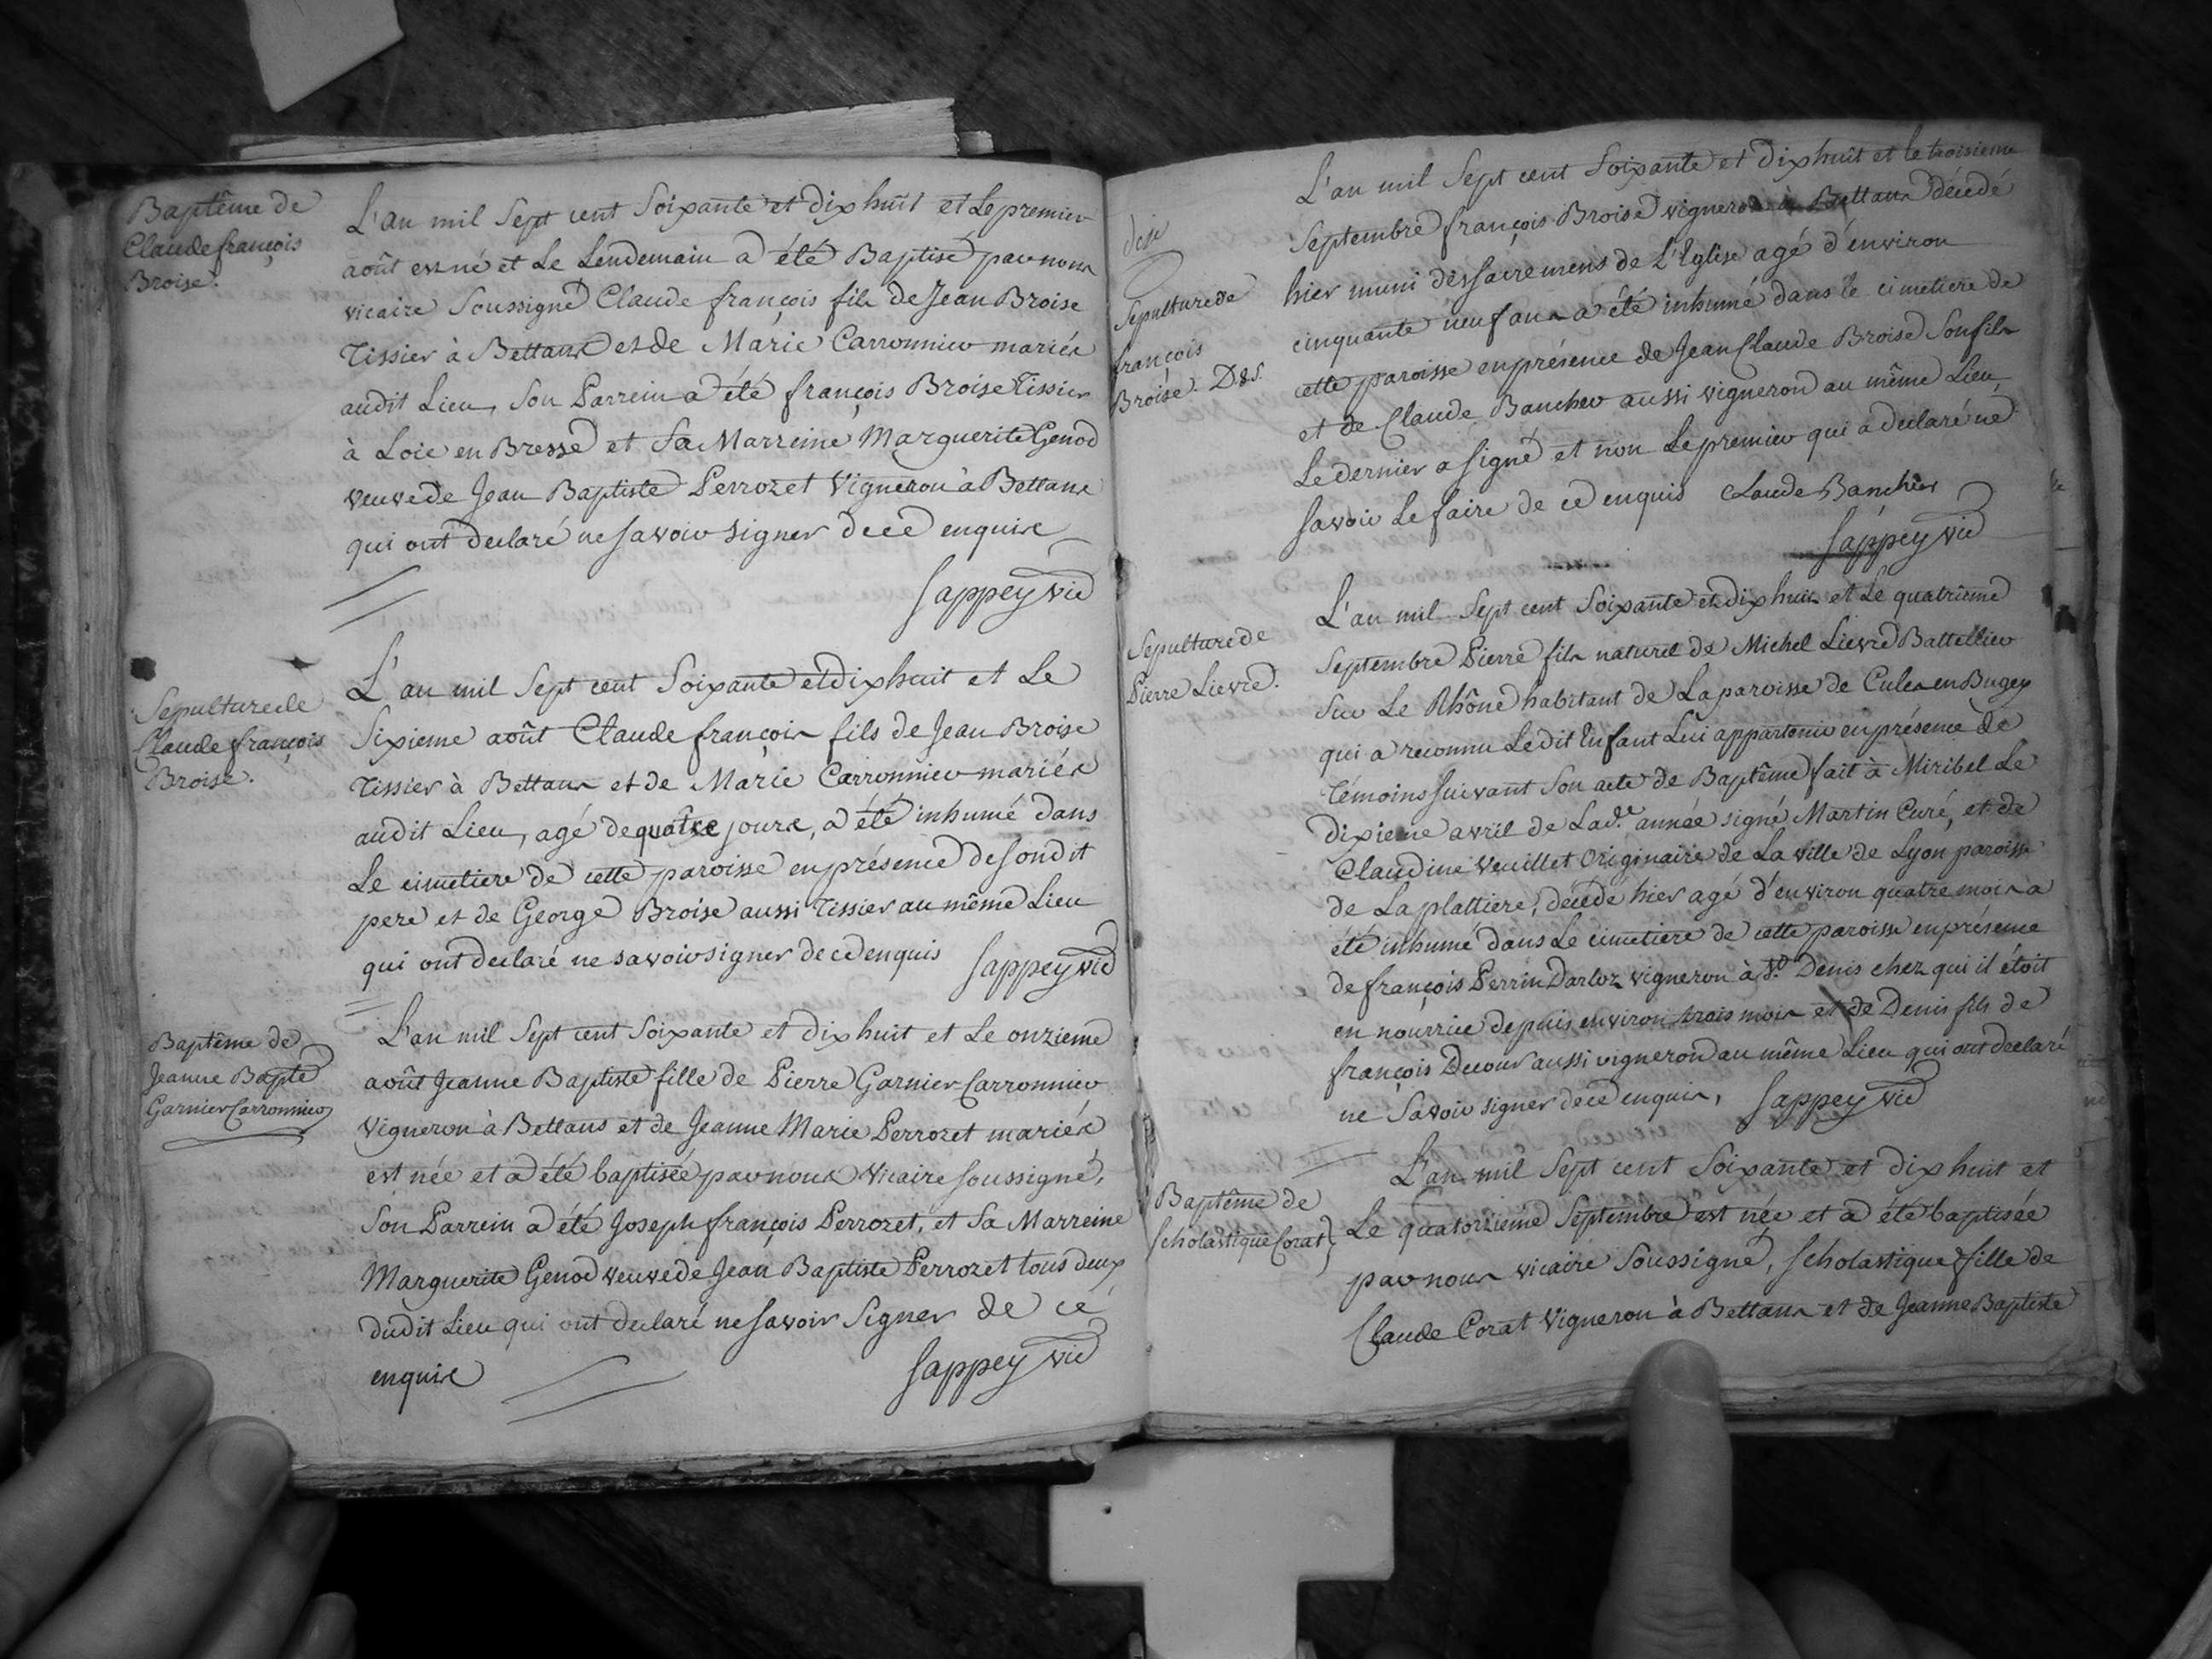 Baptême de
Claude françois
Broise.
L'an mil Sept cent Soixante et dix huit et Le premier
août est né et Le Lendemain a été Baptisé par nous
vicaire Soussigné Claude françois fils de Jean Broise
Tissier à Bettans et de Marie Carronnier mariés
audit Lieu, Son Parrein a été françois Broise Tissier
à Loie en Bresse et Sa Marreine Marguerite Genod
veuve de Jean Baptiste Perrozet Vigneron à Bettans
qui ont declaré ne savoir signer de ce enquis
Sappey vic
Sepulture de
Claude françois
Broise.
L'an mil Sept cent Soixante et dix huit et Le
Sixieme août Claude françois fils de Jean Broise
Tissier à Bettans et de Marie Carronnier mariés
audit Lieu, agé de quatre jours, a été inhumé dans
Le cimetiere de cette paroisse en présence de sondit
pere et de George Broise aussi Tissier au même Lieu
qui ont declaré ne savoir signer de ce enquis Sappey vic
Baptême de
Jeanne Bapte
Garnier Carronnier
L'an mil Sept cent Soixante et dix huit et Le onzieme
août Jeanne Baptiste fille de Pierre Garnier Carronnier
Vigneron à Bettans et de Jeanne Marie Perrozet mariés
est née et a été baptisée par nous vicaire soussigné,
Son Parrein a été Joseph françois Perrozet, et Sa Marreine
Marguerite Genod veuve de Jean Baptiste Perrozet tous deux
dudit Lieu qui ont declaré ne savoir Signer de ce
enquis Sappey vic
Sepulture de
françois
Broise. D.8.S.
L'an mil Sept cent Soixante et Dix huit et le troisieme
Septembre françois Broise vigneron à Bettans décedé
hier muni des sacremens de L'Eglise agé d'environ
cinquante neuf ans a été inhumé dans le cimetiere de
cette paroisse en présence de Jean Claude Broise Son fils
et de Claude Bancher aussi vigneron au même Lieu,
Le dernier a signé et non Le premier qui a declaré ne
savoir Le faire de ce enquis Claude Bancher
Sappey vic
Sepulture de
Pierre Lievre.
L'an mil Sept cent Soixante et dix huit et Le quatrième
Septembre Pierre fils naturel de Michel Lievre Battellier
Sur Le Rhône habitant de La paroisse de Cules en Bugey
qui a reconnu Ledit Enfant Lui appartenir en présence de
Témoins suivant Son acte de Baptême fait à Miribel Le
dixieme avril de Lade. année signé Martin Curé, et de
Claudine Veuillet Originaire de La ville de Lyon paroisse
de La plattiere, décedé hier agé d'environ quatre mois a
été inhumé dans Le cimetiere de cette paroisse en présence
de françois Perrin Darloz vigneron à St. Denis chez qui il étoit
en nourrice depuis environ trois mois et de Denis fils de
françois Decour aussi vigneron au même Lieu qui ont declaré
ne Savoir signer de ce enquis, Sappey vic
Baptême de
Scholastique Corat
L'an mil Sept cent Soixante et dix huit et
Le quatorzieme Septembre est née et a été baptisée
par nous vicaire Soussigné, Scholastique fille de
Claude Corat Vigneron à Bettans et de Jeanne Baptiste